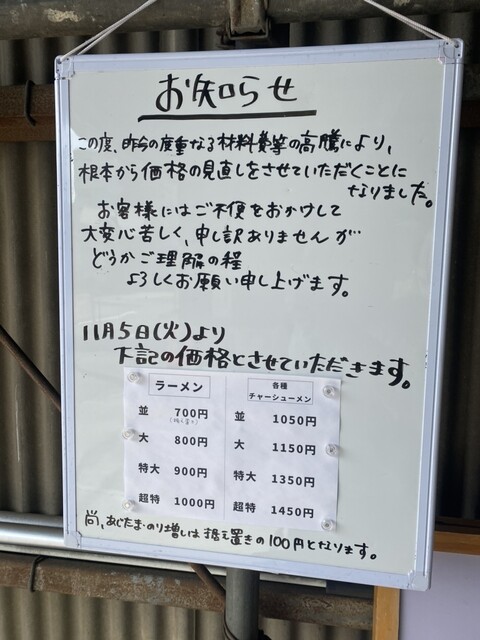 お知らせ
この度、昨今の度重なる材料費等の高騰により、
根本から価格の見直しをさせていただくことに
なりました。
お客様にはご不便をおかけして
大変心苦しく、申し訳ありませんが
どうかご理解の程
よろしくお願い申し上げます。
11月5日(火)より
下記の価格とさせていただきます。
ラーメン
並 700円
大 800円
特大 900円
超特 1000円
各種
チャーシューメン
並 1050円
大 1150円
特大 1350円
超特 1450円
尚、あじたま・のり増しは据え置きの100円となります。